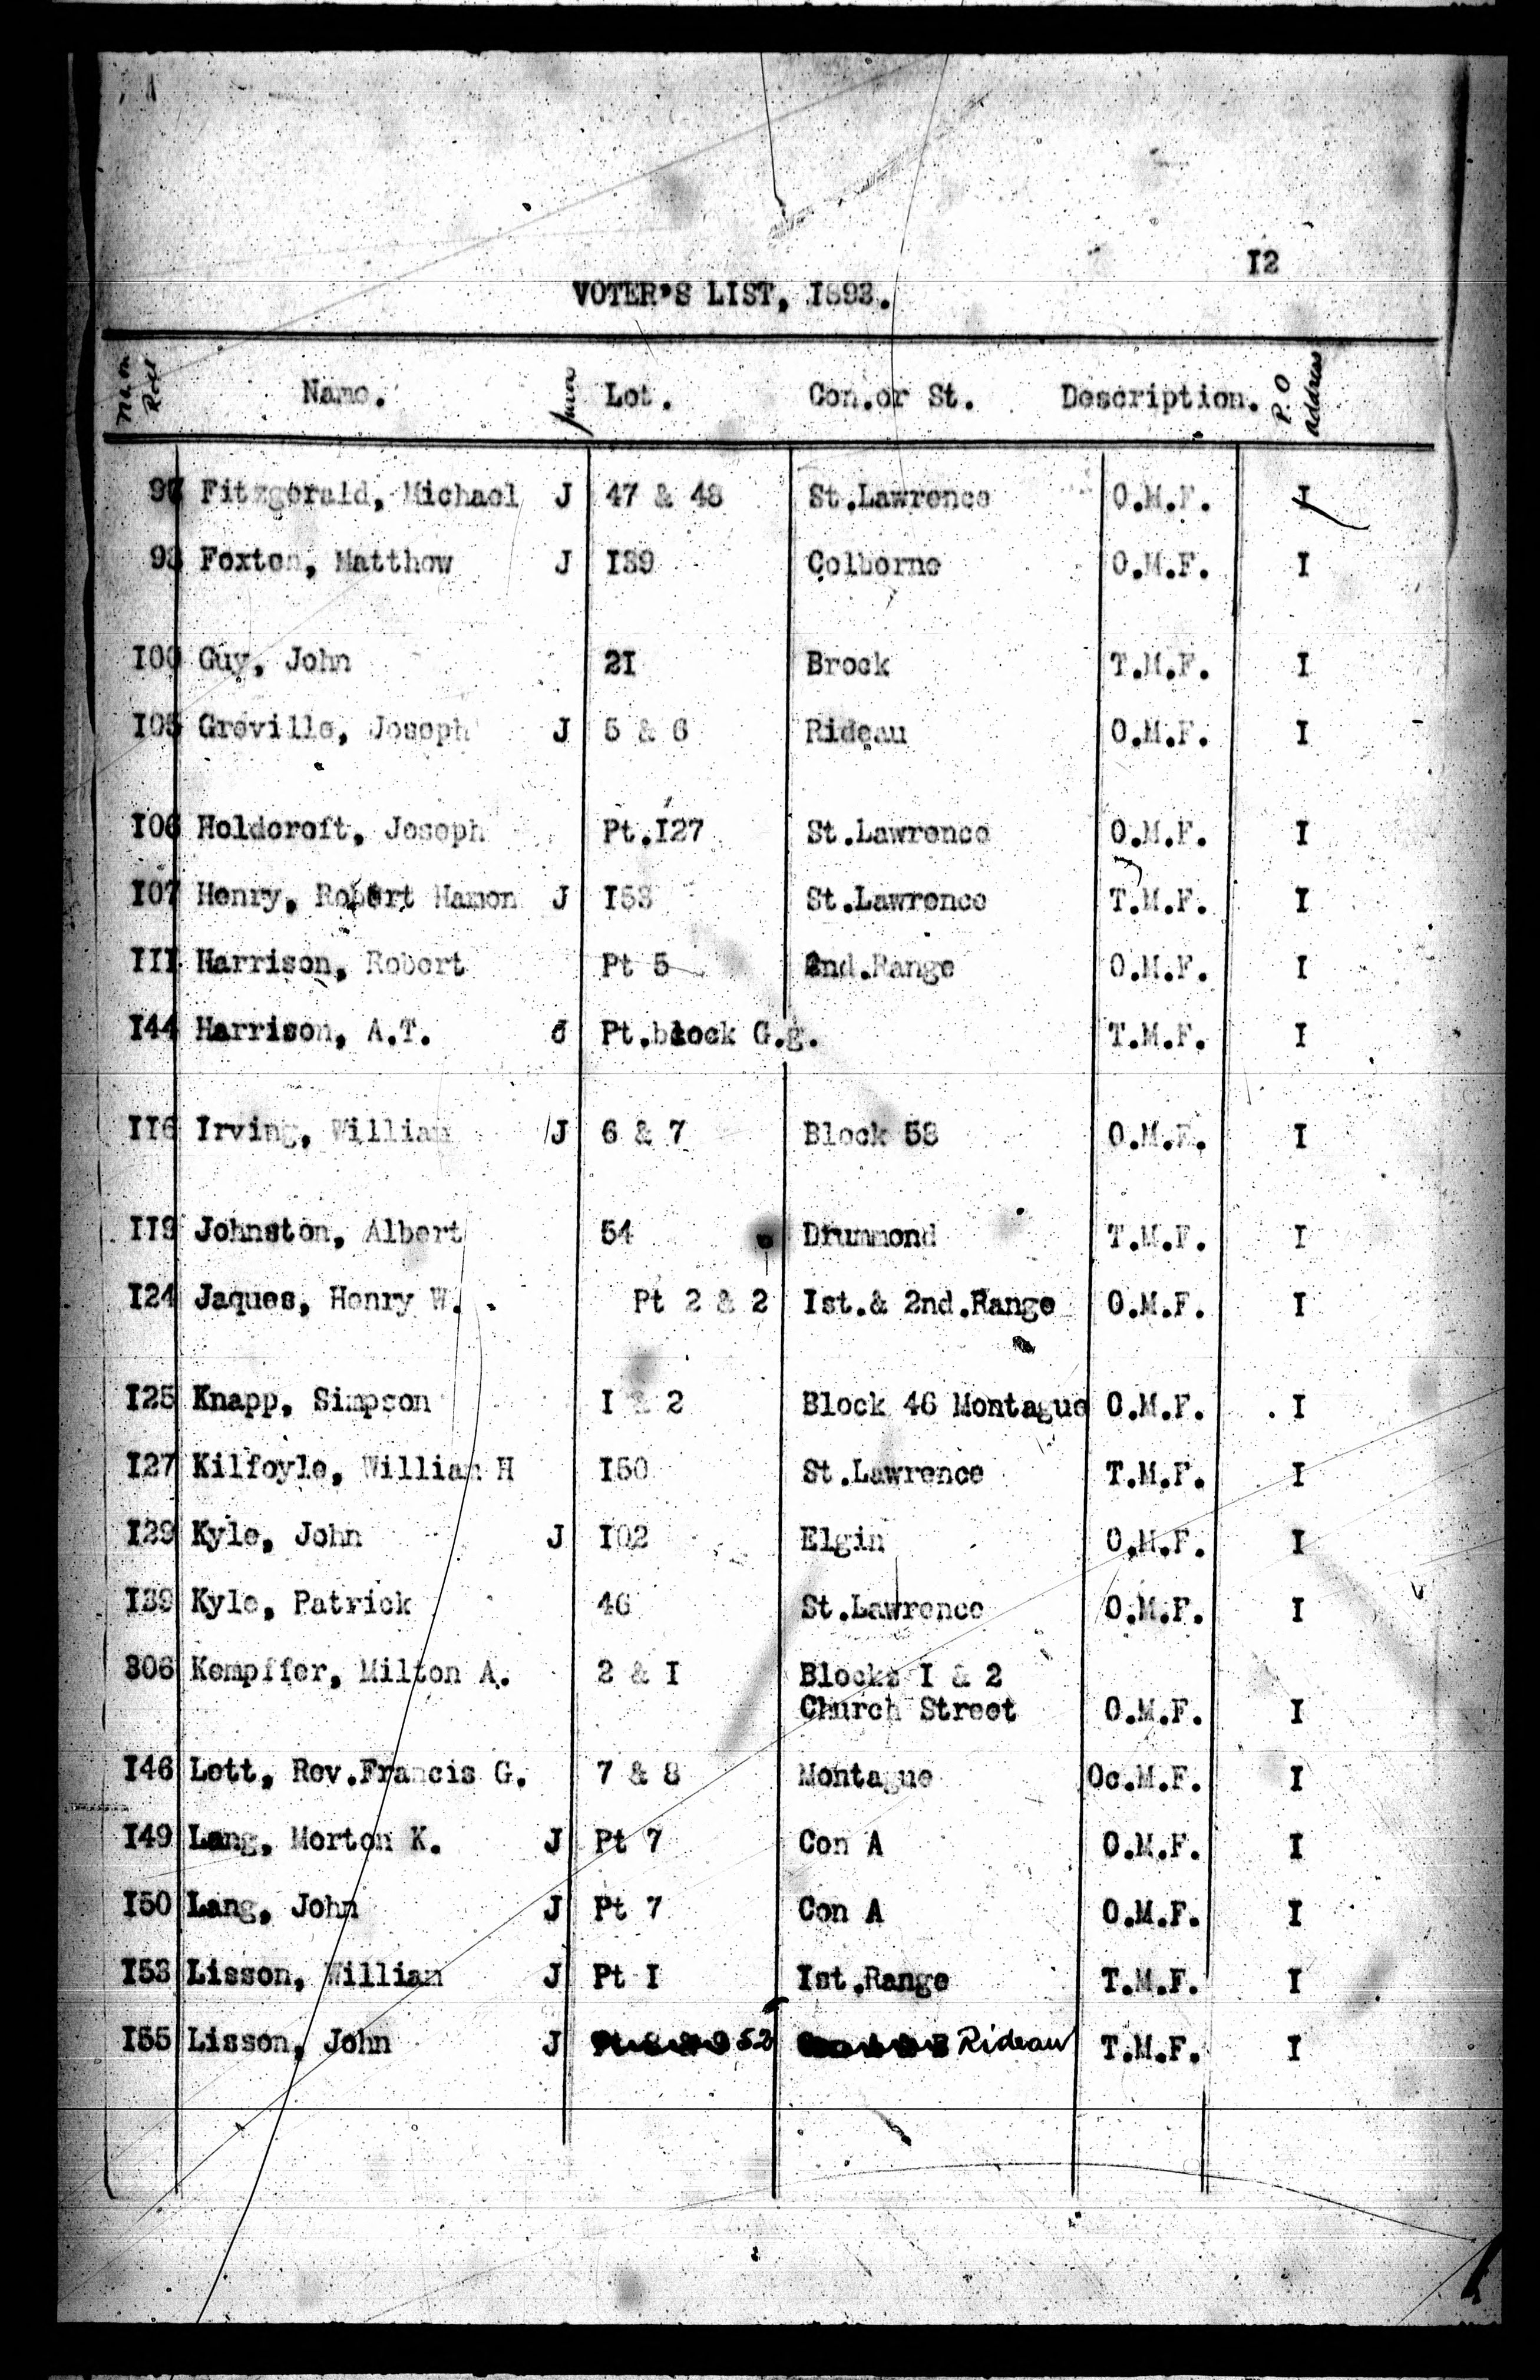 I2
VOTER'S LIST, I893.
No. on Roll Name. juror Lot. Con.or St. Description. P.O address
97 Fitzgerald, Michael J 47 & 48 St.Lawrence O.M.F. I
98 Foxton, Matthew J I39 Colborne O.M.F. I
I00 Guy, John 2I Brock T.M.F. I
I05 Greville, Joseph J 5 & 6 Rideau O.M.F. I
I06 Holdcroft, Joseph Pt.I27 St.Lawrence O.M.F. I
I07 Henry, Robert Hamon J I53 St.Lawrence T.M.F. I
III Harrison, Robert Pt 5 2nd.Range O.M.F. I
I44 Harrison, A.T. J Pt.block G.g. T.M.F. I
II6 Irving, William J 6 & 7 Block 58 O.M.F. I
II9 Johnston, Albert 54 Drummond T.M.F. I
I24 Jaques, Henry W. Pt 2 & 2 Ist.& 2nd.Range O.M.F. I
I25 Knapp, Simpson I & 2 Block 46 Montague O.M.F. I
I27 Kilfoyle, William H I50 St.Lawrence T.M.F. I
I29 Kyle, John J I02 Elgin O.M.F. I
I39 Kyle, Patrick 46 St.Lawrence O.M.F. I
306 Kempffer, Milton A. 2 & I Blocks I & 2
Church Street O.M.F. I
I46 Lett, Rev.Francis G. 7 & 8 Montague Oc.M.F. I
I49 Lang, Morton K. J Pt 7 Con A O.M.F. I
I50 Lang, John J Pt 7 Con A O.M.F. I
I53 Lisson, William J Pt I Ist.Range T.M.F. I
I55 Lisson, John J 52 Rideau T.M.F. I